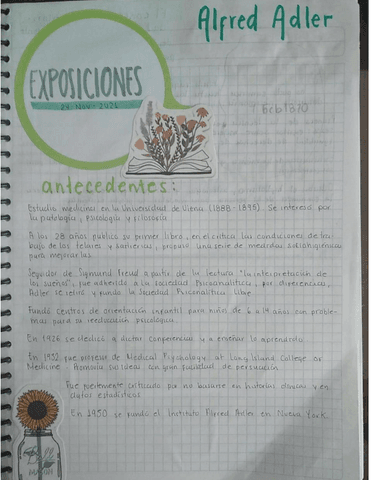 Alfred Adler
EXPOSICIONES
24. Nov. 2021
antecedentes:
Estudio medicina en la Universidad de Viena (1888-1895). Se interesó por
la patología, psicología y filosofía
A los 28 años publicó su primer libro, en el critica las condiciones de tra-
bajo de los telares y sastrerías, propuso una serie de medidas sociohigienicas
para mejorarlas.
Seguidor de Sigmund Freud a partir de la lectura "la interpretación de
los sueños", fue adherido a la sociedad Psicoanalítica, por diferencias,
Adler se retiró y fundo la Sociedad Psicoanalítica libre.
Fundó centros de orientación infantil para niños de 6 a 14 años con proble-
mas para su reeducación psicológica.
En 1926 se dedicó a dictar conferencias y a enseñar lo aprendido.
En 1932 fue profesor de Medical Psychology at Long Island College or
Medicine. Promovia sus ideas con gran facultad de persuación
Fue fuertemente criticado por no basarse en historias clínicas y en
datos estadísticos
En 1950 se fundo el Instituto Alfred Adler en Nueva York.
MASON